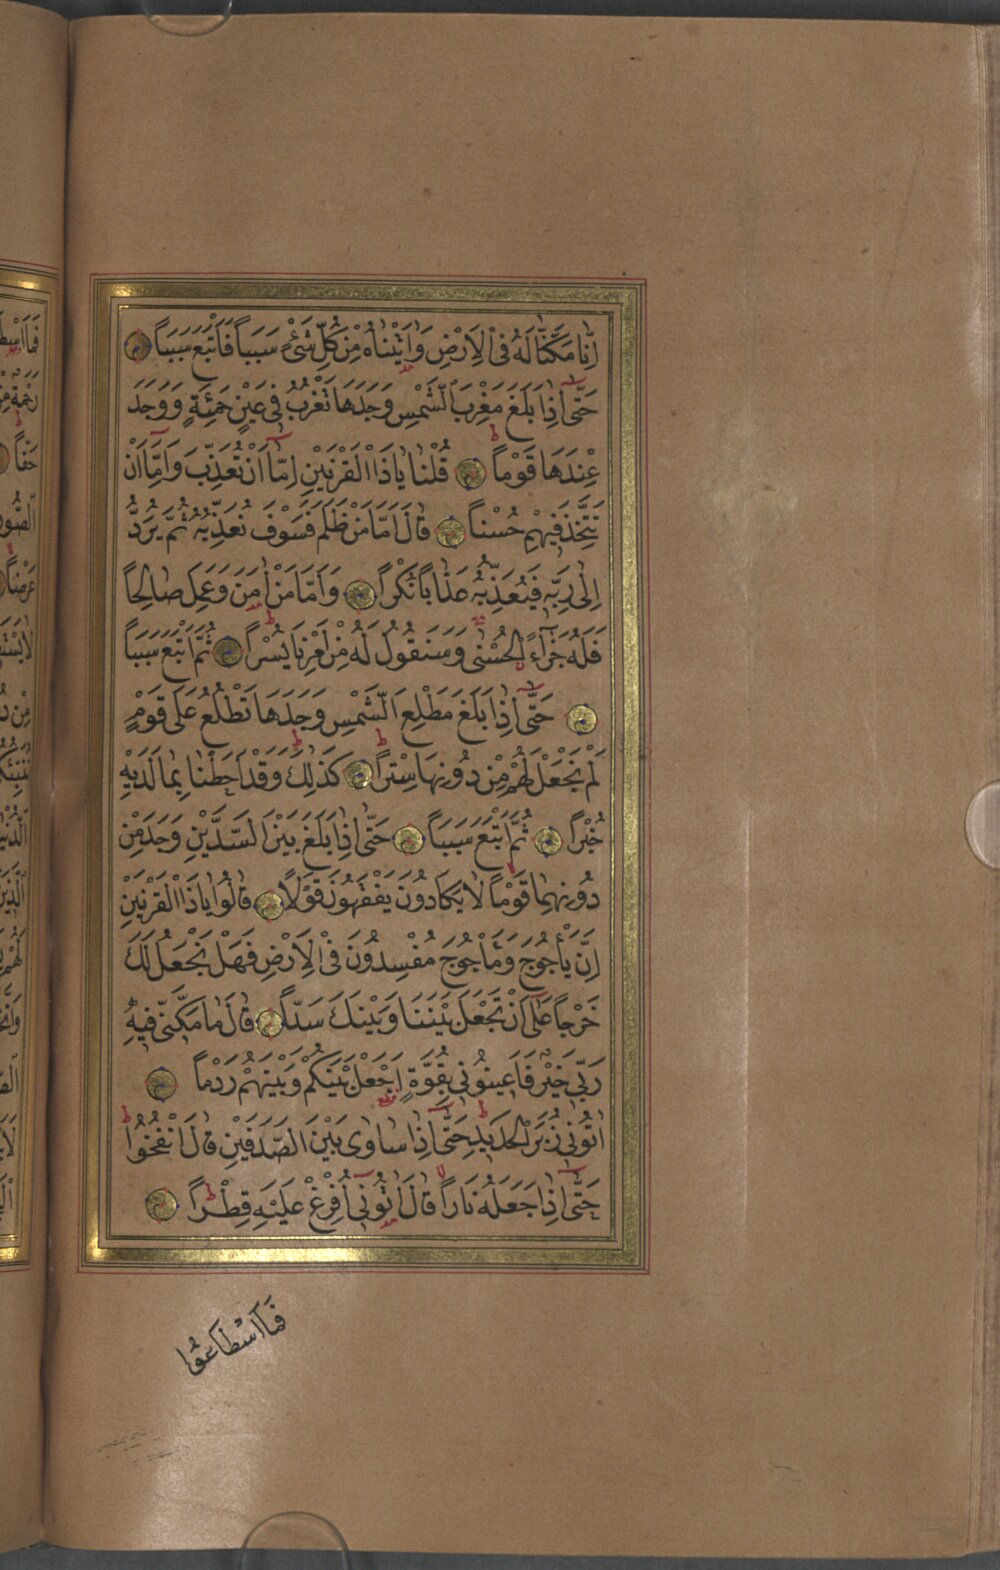 اِنَّا مَكَّنَّا لَهُ فِى الْاَرْضِ وَاٰتَيْنَاهُ مِنْ كُلِّ شَىْءٍ سَبَباً فَاَتْبَعَ سَبَباً
حَتّٰٓى اِذَا بَلَغَ مَغْرِبَ الشَّمْسِ وَجَدَهَا تَغْرُبُ فِى عَيْنٍ حَمِئَةٍ وَوَجَدَ
عِنْدَهَا قَوْماً قُلْنَا يَاذَا الْقَرْنَيْنِ اِمَّٓا اَنْ تُعَذِّبَ وَاِمَّٓا اَنْ
تَتَّخِذَ فِيهِمْ حُسْناً قَالَ اَمَّا مَنْ ظَلَمَ فَسَوْفَ نُعَذِّبُهُ ثُمَّ يُرَدُّ
اِلٰى رَبِّهِ فَيُعَذِّبُهُ عَذَاباً نُكْراً وَاَمَّا مَنْ اٰمَنَ وَعَمِلَ صَالِحاً
فَلَهُ جَزَٓاءً الْحُسْنٰى وَسَنَقُولُ لَهُ مِنْ اَمْرِنَا يُسْراً ثُمَّ اَتْبَعَ سَبَباً
حَتّٰٓى اِذَا بَلَغَ مَطْلِعَ الشَّمْسِ وَجَدَهَا تَطْلُعُ عَلٰى قَوْمٍ
لَمْ نَجْعَلْ لَهُمْ مِنْ دُونِهَا سِتْراً كَذٰلِكَ وَقَدْ اَحَطْنَا بِمَا لَدَيْهِ
خُبْراً ثُمَّ اَتْبَعَ سَبَباً حَتّٰٓى اِذَا بَلَغَ بَيْنَ السَّدَّيْنِ وَجَدَ مِنْ
دُونِهِمَا قَوْماً لَا يَكَادُونَ يَفْقَهُونَ قَوْلاً قَالُوا يَاذَا الْقَرْنَيْنِ
اِنَّ يَأْجُوجَ وَمَأْجُوجَ مُفْسِدُونَ فِى الْاَرْضِ فَهَلْ نَجْعَلُ لَكَ
خَرْجاً عَلٰٓى اَنْ تَجْعَلَ بَيْنَنَا وَبَيْنَكَ سَدّاً قَالَ مَا مَكَّنّٖى فِيهِ
رَبّٖى خَيْرٌ فَاَعِينُونٖى بِقُوَّةٍ اَجْعَلْ بَيْنَكُمْ وَبَيْنَهُمْ رَدْماً
اٰتُونٖى زُبَرَ الْحَدِيدِ حَتّٰٓى اِذَا سَاوٰى بَيْنَ الصَّدَفَيْنِ قَالَ انْفُخُوا
حَتّٰٓى اِذَا جَعَلَهُ نَاراً قَالَ اٰتُونٖٓى اُفْرِغْ عَلَيْهِ قِطْراً
فَمَا اسْطَاعُوا